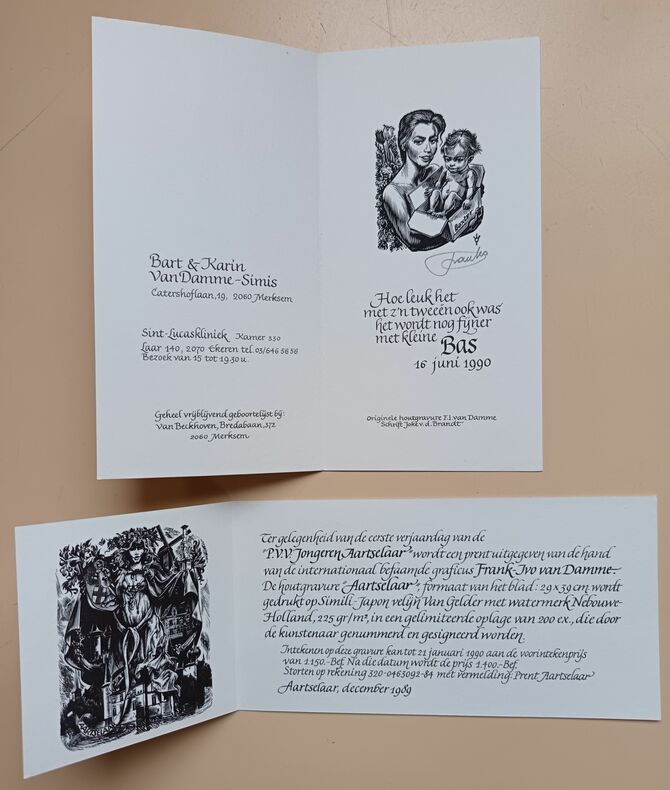 Bart & Karin
VanDamme-Simis
Catershoflaan, 19, 2060 Merksem
Sint-Lucaskliniek Kamer 330
Laar 140, 2070 Ekeren tel. 03/646 56 56
Bezoek van 15 tot 19.30 u.
Geheel vrijblijvend geboortelijst bij:
Van Beckhoven, Bredabaan, 372
2060 Merksem
Hoe leuk het
met z'n tweeën ook was
het wordt nog fijner
met kleine Bas
16 juni 1990
Originele houtgravure F.I. van Damme
Schrift Joke v.d. Brandt
Ter gelegenheid van de eerste verjaardag van de
"P.V.V. Jongeren Aartselaar" wordt een prent uitgegeven van de hand
van de internationaal befaamde graficus Frank-Ivo van Damme-
De houtgravure "Aartselaar", formaat van het blad: 29 x 39 cm wordt
gedrukt op Simili-Japon velijn Van Gelder met watermerk Nebouwe-
Holland, 225 gr/m², in een gelimiteerde oplage van 200 ex., die door
de kunstenaar genummerd en gesigneerd worden.
Intekenen op deze gravure kan tot 21 januari 1990 aan de voorintekenprijs
van 1.150.-Bef. Na die datum wordt de prijs 1.400.-Bef.
Storten op rekening 320-0463092-84 met vermelding: Prent Aartselaar
Aartselaar, december 1989